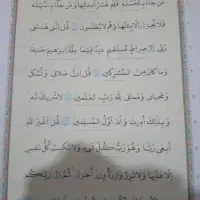 مَن جَآءَ بِٱلْحَسَنَةِ فَلَهُۥ عَشْرُ أَمْثَالِهَا وَمَن جَآءَ بِٱلسَّيِّئَةِ
فَلَا يُجْزَىٰٓ إِلَّا مِثْلَهَا وَهُمْ لَا يُظْلَمُونَ قُلْ إِنَّنِى هَدَىٰنِى
رَبِّىٓ إِلَىٰ صِرَٰطٍ مُّسْتَقِيمٍ دِينًا قِيَمًا مِّلَّةَ إِبْرَٰهِيمَ حَنِيفًا
وَمَا كَانَ مِنَ ٱلْمُشْرِكِينَ قُلْ إِنَّ صَلَاتِى وَنُسُكِى
وَمَحْيَاىَ وَمَمَاتِى لِلَّهِ رَبِّ ٱلْعَٰلَمِينَ لَا شَرِيكَ لَهُۥ
وَبِذَٰلِكَ أُمِرْتُ وَأَنَا۠ أَوَّلُ ٱلْمُسْلِمِينَ قُلْ أَغَيْرَ ٱللَّهِ
أَبْغِى رَبًّا وَهُوَ رَبُّ كُلِّ شَىْءٍ وَلَا تَكْسِبُ كُلُّ نَفْسٍ
إِلَّا عَلَيْهَا وَلَا تَزِرُ وَازِرَةٌ وِزْرَ أُخْرَىٰ ثُمَّ إِلَىٰ رَبِّكُم